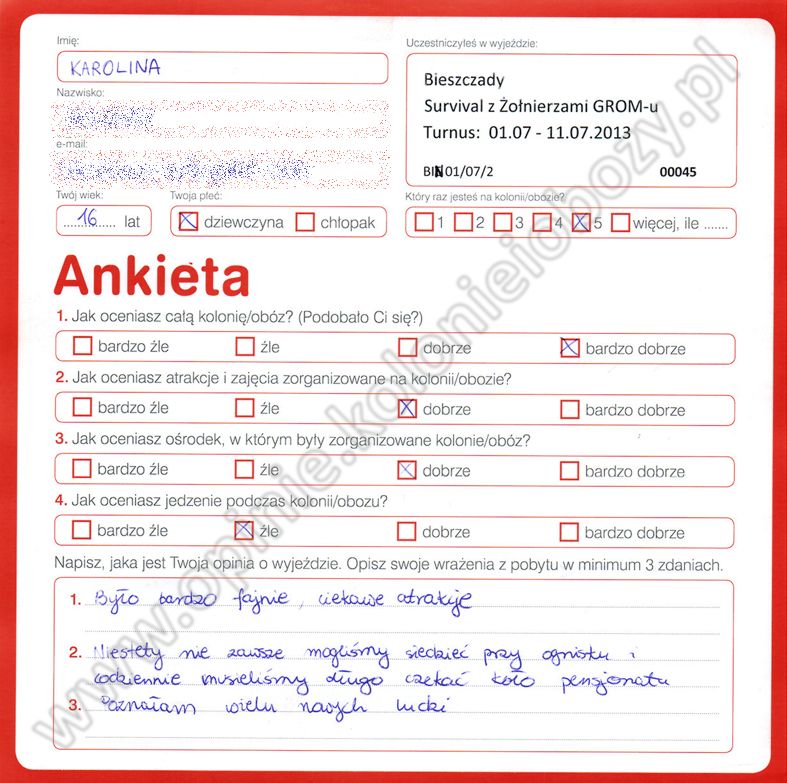 Imię:
KAROLINA
Nazwisko:
e-mail:
Twój wiek:
16 lat
Twoja płeć:
dziewczyna chłopak
Uczestniczyłeś w wyjeździe:
Bieszczady
Survival z Żołnierzami GROM-u
Turnus: 01.07 - 11.07.2013
BIN01/07/2 00045
Który raz jesteś na kolonii/obozie?
1 2 3 4 5 więcej, ile .......
Ankieta
1. Jak oceniasz całą kolonię/obóz? (Podobało Ci się?)
bardzo źle źle dobrze bardzo dobrze
2. Jak oceniasz atrakcje i zajęcia zorganizowane na kolonii/obozie?
bardzo źle źle dobrze bardzo dobrze
3. Jak oceniasz ośrodek, w którym były zorganizowane kolonie/obóz?
bardzo źle źle dobrze bardzo dobrze
4. Jak oceniasz jedzenie podczas kolonii/obozu?
bardzo źle źle dobrze bardzo dobrze
Napisz, jaka jest Twoja opinia o wyjeździe. Opisz swoje wrażenia z pobytu w minimum 3 zdaniach.
1. Było bardzo fajnie, ciekawe atrakcje
2. Niestety nie zawsze mogliśmy siedzieć przy ognisku i
codziennie musieliśmy długo czekać koło pensjonatu
3. Poznałam wielu nowych ludzi
www.opinie.kolonieiobozy.pl